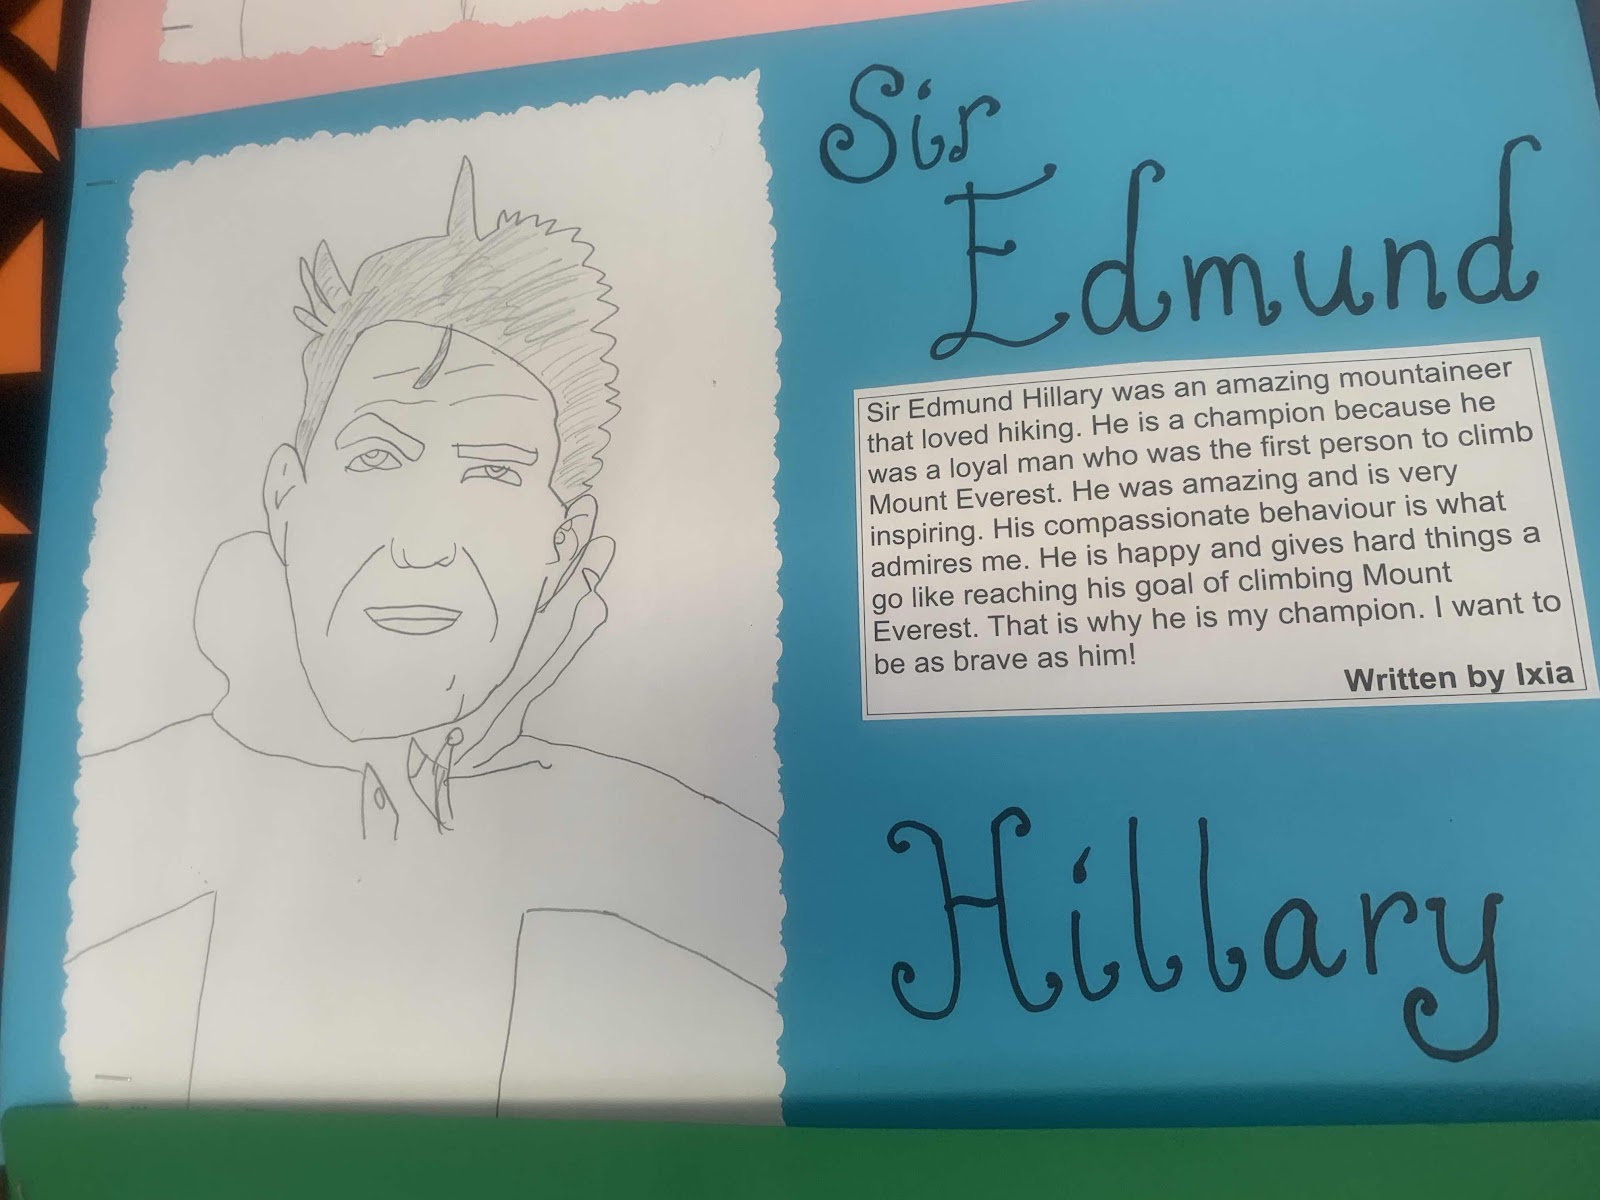 Sir
Edmund
Sir Edmund Hillary was an amazing mountaineer
that loved hiking. He is a champion because he
was a loyal man who was the first person to climb
Mount Everest. He was amazing and is very
inspiring. His compassionate behaviour is what
admires me. He is happy and gives hard things a
go like reaching his goal of climbing Mount
Everest. That is why he is my champion. I want to
be as brave as him!
Written by Ixia
Hillary